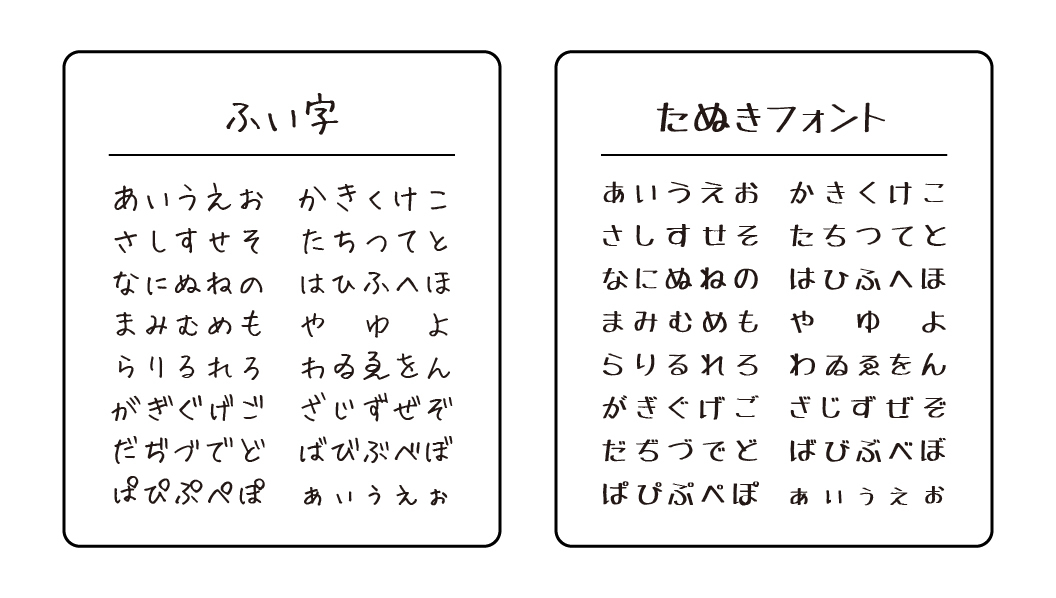 ふい字
あいうえお かきくけこ
さしすせそ たちつてと
なにぬねの はひふへほ
まみむめも や ゆ よ
らりるれろ わゐゑをん
がぎぐげご ざじずぜぞ
だぢづでど ばびぶべぼ
ぱぴぷぺぽ ぁぃぅぇぉ
たぬきフォント
あいうえお かきくけこ
さしすせそ たちつてと
なにぬねの はひふへほ
まみむめも や ゆ よ
らりるれろ わゐゑをん
がぎぐげご ざじずぜぞ
だぢづでど ばびぶべぼ
ぱぴぷぺぽ ぁぃぅぇぉ